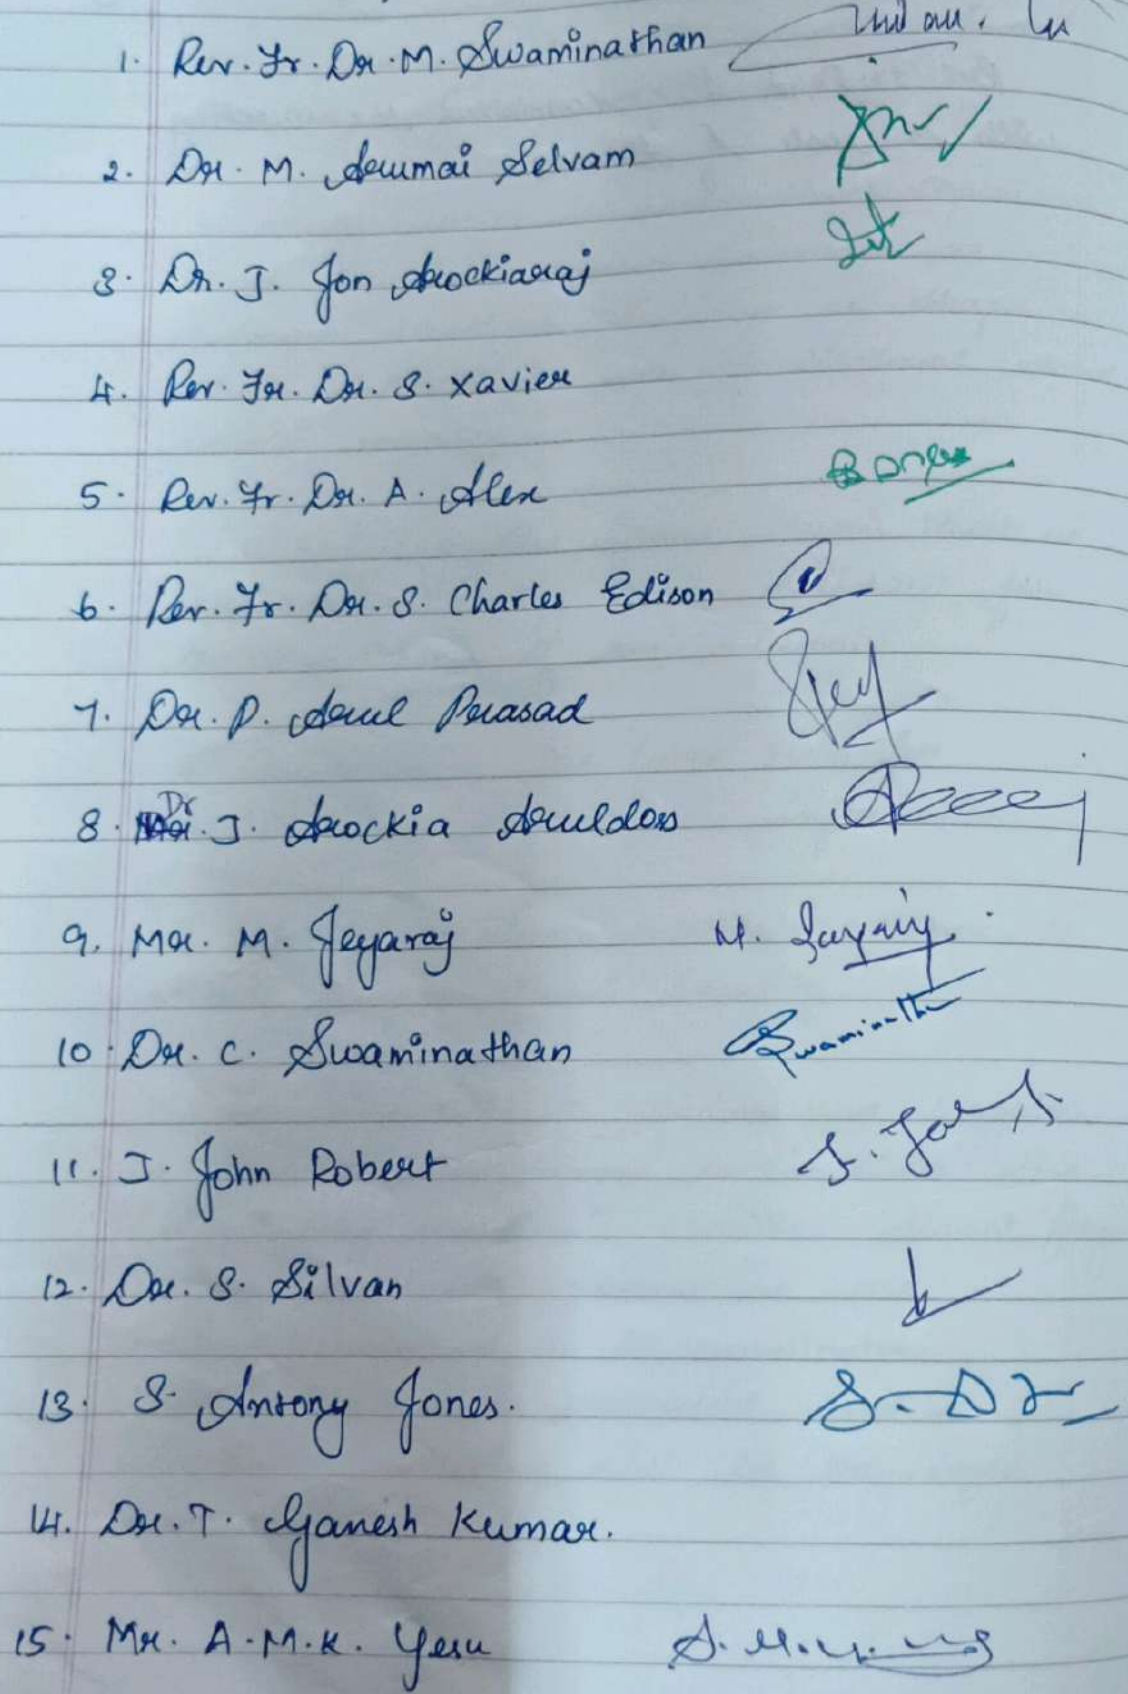 1. Rev. Fr. Dr. M. Swaminathan
2. Dr. M. Arumai Selvam
3. Dr. J. Jon Arockiaraj
4. Rev. Fr. Dr. S. Xavier
5. Rev. Fr. Dr. A. Alex
6. Rev. Fr. Dr. S. Charles Edison
7. Dr. P. Arul Prasad
8. Dr J. Arockia Aruldoss
9. Mr. M. Jeyaraj M. Jeyaraj
10. Dr. C. Swaminathan Swaminathan
11. J. John Robert
12. Dr. S. Silvan
13. S. Antony Jones.
14. Dr. T. Ganesh Kumar.
15. Mr. A.M.K. Yesu